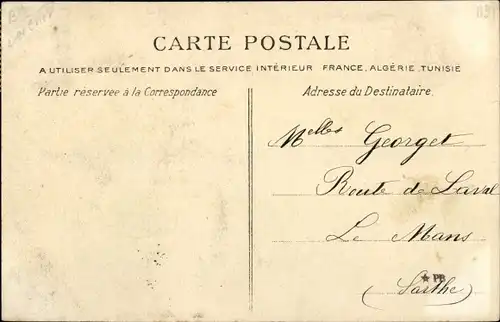 CARTE POSTALE
A UTILISER SEULEMENT DANS LE SERVICE INTÉRIEUR FRANCE, ALGÉRIE, TUNISIE
Partie réservée à la Correspondance
Adresse du Destinataire.
Melles Georget
Route de Laval
Le Mans
PB
(Sarthe)